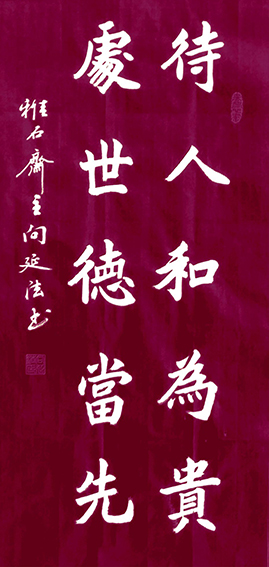 待人和為貴
處世德當先
雅石齋主向延法书